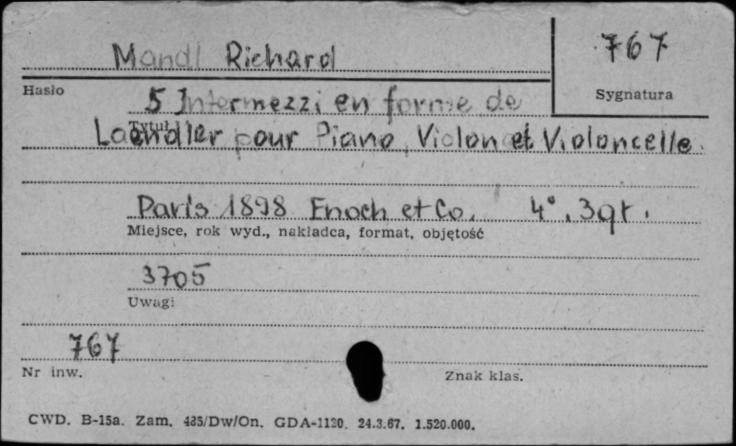 767
Mandl Richard
Hasło
Sygnatura
5 Intermezzi en forme de
Tytuł
Laendler pour Piano, Violon et Violoncelle.
Paris 1898 Enoch et Co. 4°. 3gt.
Miejsce, rok wyd., nakładca, format, objętość
3705
Uwagi
767
Nr inw.
Znak klas.
CWD. B-15a. Zam. 485/Dw/On. GDA-1120. 24.3.67. 1.520.000.